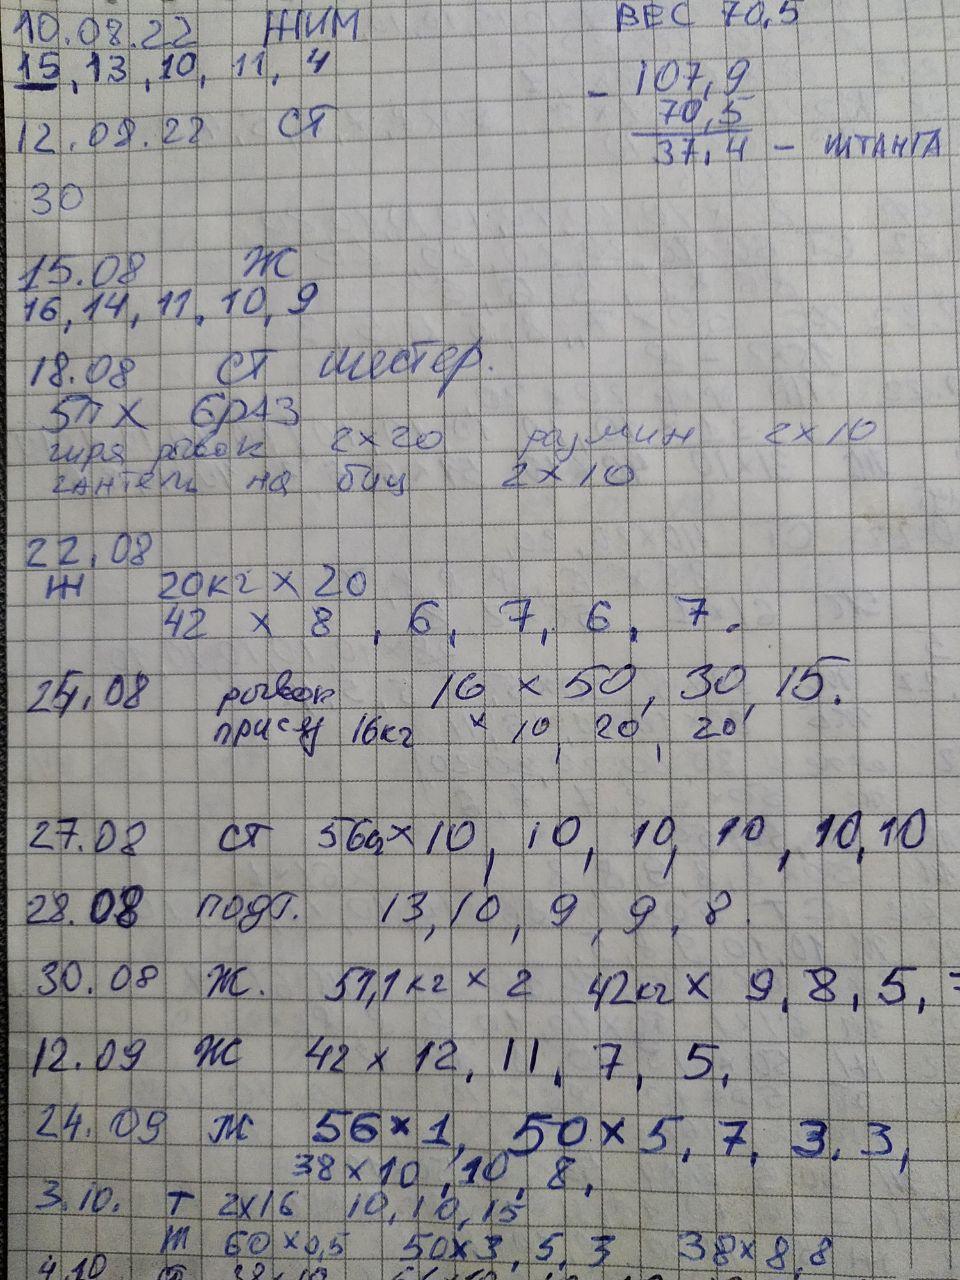 10.08.22 ЖИМ ВЕС 70,5
15, 13, 10, 11, 4
- 107,9
70,5
12.08.22 СТ
37,4 - ШТАНГА
30
15.08 Ж
16, 14, 11, 10, 9
18.08 СТ шестер.
5П Х 6РАЗ
гиря рывок 2х20 румын 2х10
гантель на биц 2х10
22.08
Ж 20кг х 20
42 х 8, 6, 7, 6, 7.
25.08 рывок 16 х 50, 30, 15.
присед 16кг х 10, 20, 20
27.08 СТ 56 х 10, 10, 10, 10, 10, 10
28.08 подт. 13, 10, 9, 9, 8.
30.08 Ж. 51,1кг х 2 42кг х 9, 8, 5, 7
12.09 Ж 42 х 12, 11, 7, 5.
24.09 Ж 56 х 1, 50 х 5, 7, 3, 3,
38 х 10, 10, 8,
3.10. Т 2х16 10, 10, 15
Ж 60 х 0,5 50х3, 5, 3 38х8,8
4.10